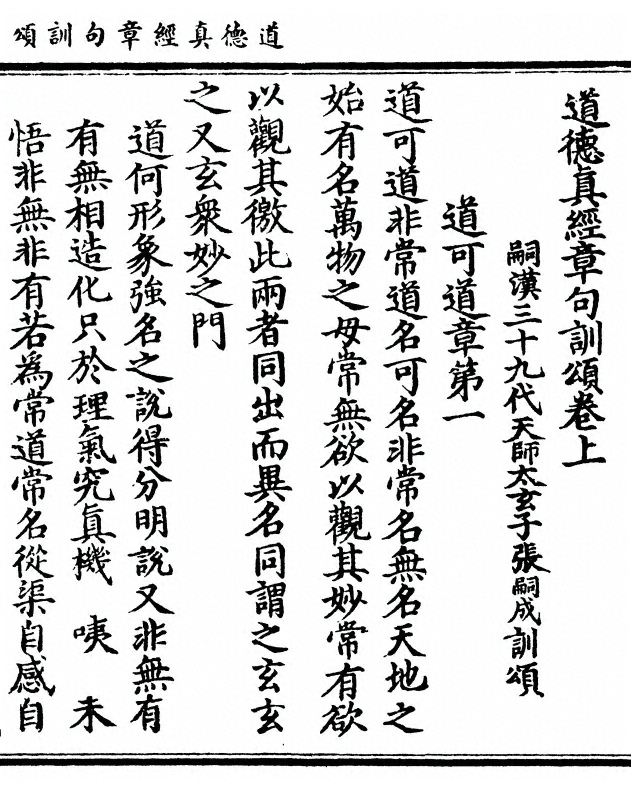 道德真經章句訓頌
道德真經章句訓頌卷上
嗣漢三十九代天師太玄子張嗣成訓頌
道可道章第一
道可道非常道名可名非常名無名天地之
始有名萬物之母常無欲以觀其妙常有欲
以觀其徼此兩者同出而異名同謂之玄玄
之又玄衆妙之門
道何形象強名之説得分明説又非無有
有無相造化只於理氣究真機 咦 未
悟非無非有若為常道常名從渠自感自